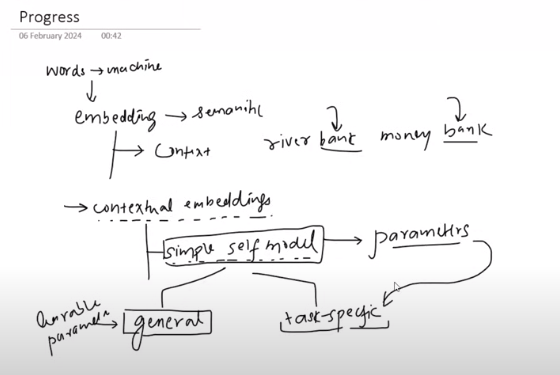 Progress
06 February 2024 00:42
words → machine
embedding → semantic
context
river bank money bank
→ contextual embeddings
simple self model → parameters
learnable parameters → general
task-specific